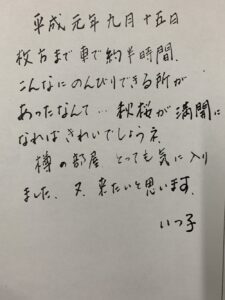 平成元年九月十五日
枚方まで車で約半時間、
こんなにのんびりできる所が
あったなんて… 秋桜が満開に
なればきれいでしょうネ
樽の部屋 とっても気に入り
ました、又、来たいと思います、
いつ子